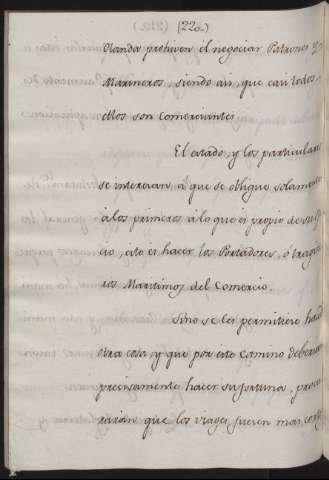 (220.)
Olanda prohiven el negociar Patrones y
Marineros, siendo asi, que casi todos
ellos son comerciantes
El estado, y los particulares
se interesan à que se obligue solamente
à los primeros à lo que es propio de su ofi
cio, esto es hacer los Portadores, ò tragine
ros Maritimos del Comercio.
Sino se les permitiere hacer
otra cosa, y que por este camino deberian
precisamente hacer su fortuna, procu
rarian que los viages fuesen mas